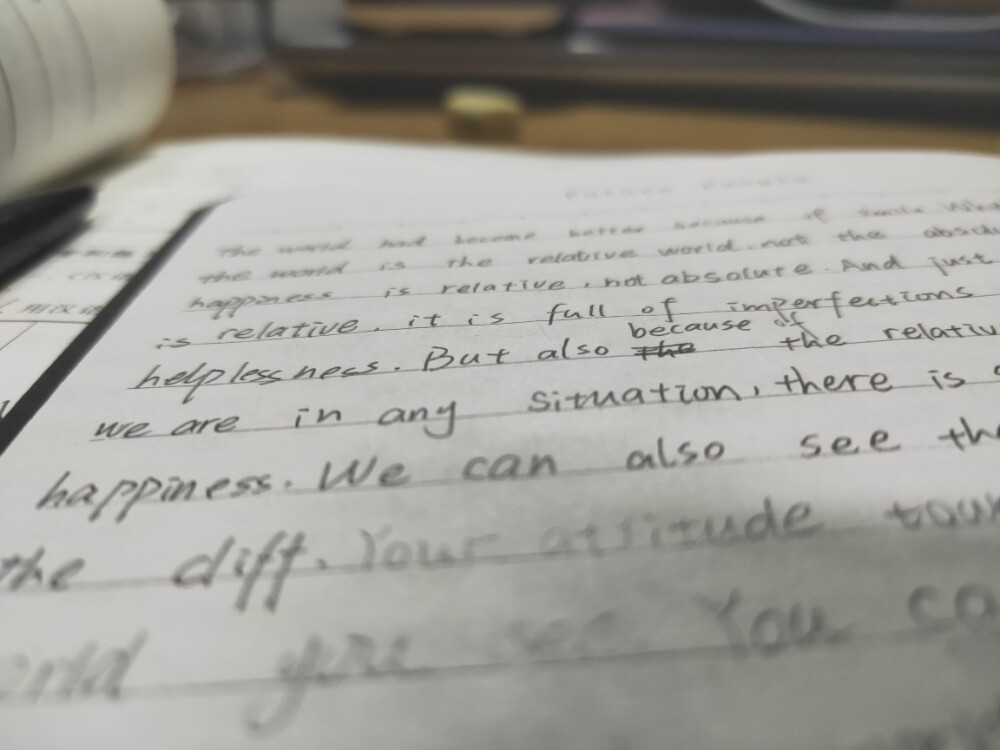 The world had become better because of smile. Wh
the world is the relative world. not the abso
happiness is relative, not absolute. And just
is relative, it is full of imperfections
helplessness. But also because of the relativ
we are in any situation, there is
happiness. We can also see th
the diff. Your attitude towar
you see. You ca